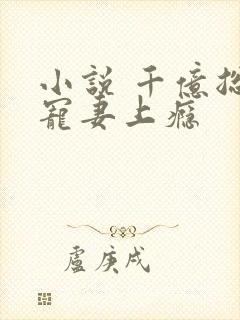 小説 千億
寵妻上癮
盧庚戌